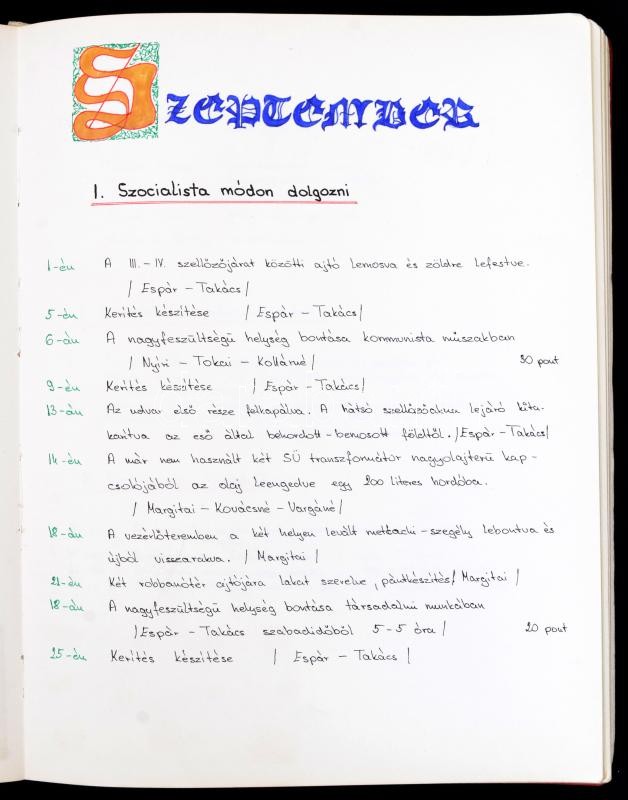 SZEPTEMBER
I. Szocialista módon dolgozni
1-én A III.-IV. szellőzőjárat közötti ajtó lemosva és zöldre lefestve.
/ Espár - Takács /
5-én Kerítés készítése / Espár - Takács /
6-án A nagyfeszültségű helység bontása kommunista műszakban
/ Nyíri - Tokai - Kollárné / 30 pont
9-én Kerítés készítése / Espár - Takács /
13-án Az udvar első része felkapálva. A hátsó szellőzőakna lejáró kita-
karítva az eső által behordott - bemosott földtől. /Espár - Takács/
14-én A már nem használt két SÜ transzformátor nagyolajterű kap-
csolójából az olaj leengedve egy 200 literes hordóba.
/ Margitai - Kovácsné - Vargáné /
18-án A vezérlőteremben a két helyen levált mettlachi-szegély lebontva és
újból visszarakva. / Margitai /
21-én Két robbanótér ajtójára lakat szerelve, pántkészítés / Margitai /
18-án A nagyfeszültségű helység bontása társadalmi munkában
/Espár - Takács szabadidőből 5-5 óra / 20 pont
25-én Kerítés készítése / Espár - Takács /